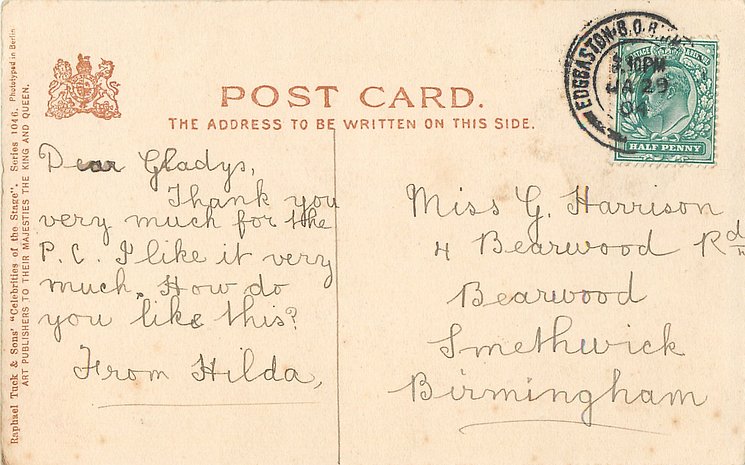 Raphael Tuck & Sons' "Celebrities of the Stage". Series 1046. Phototyped in Berlin
ART PUBLISHERS TO THEIR MAJESTIES THE KING AND QUEEN.
POST CARD.
THE ADDRESS TO BE WRITTEN ON THIS SIDE.
EDGBASTON·B.O.
8.10PM
JA 29
04
POSTAGE
HALF PENNY
Dear Gladys,
Thank you
very much for the
P.C. I like it very
much. How do
you like this?
From Hilda,
Miss G. Harrison
4 Bearwood Rd
Bearwood
Smethwick
Birmingham